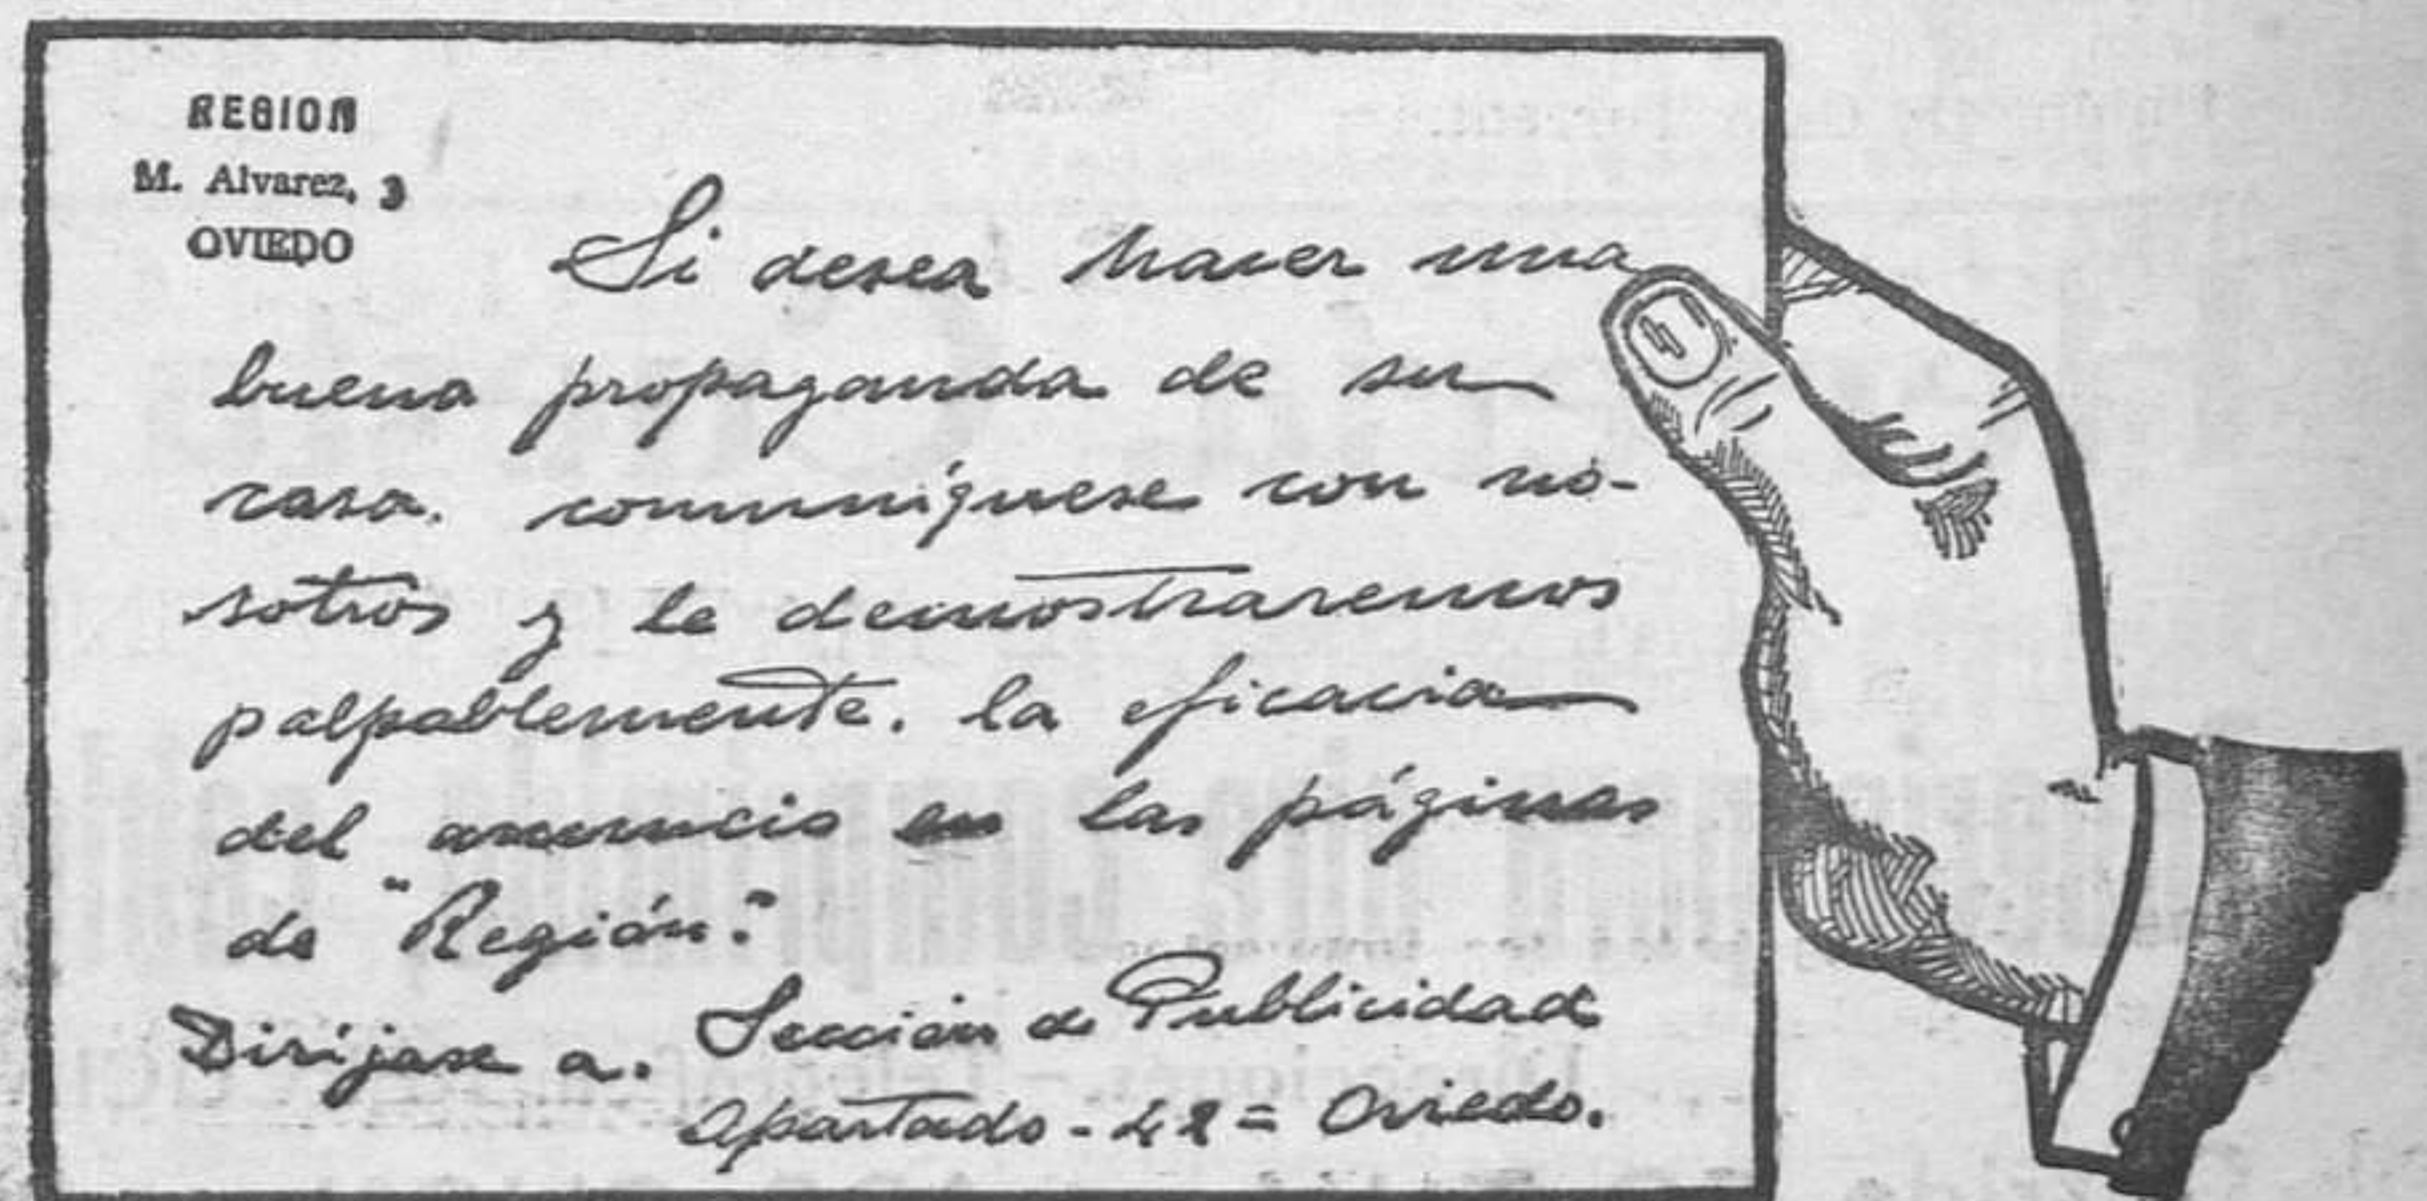 REGION
M. Alvarez, 3
OVIEDO
Si desea hacer una
buena propaganda de su
casa. comuníquese con no-
sotros y le demostraremos
palpablemente. la eficacia
del anuncio en las páginas
de "Región".
Diríjase a. Sección de Publicidad
Apartado - 42 = Oviedo.